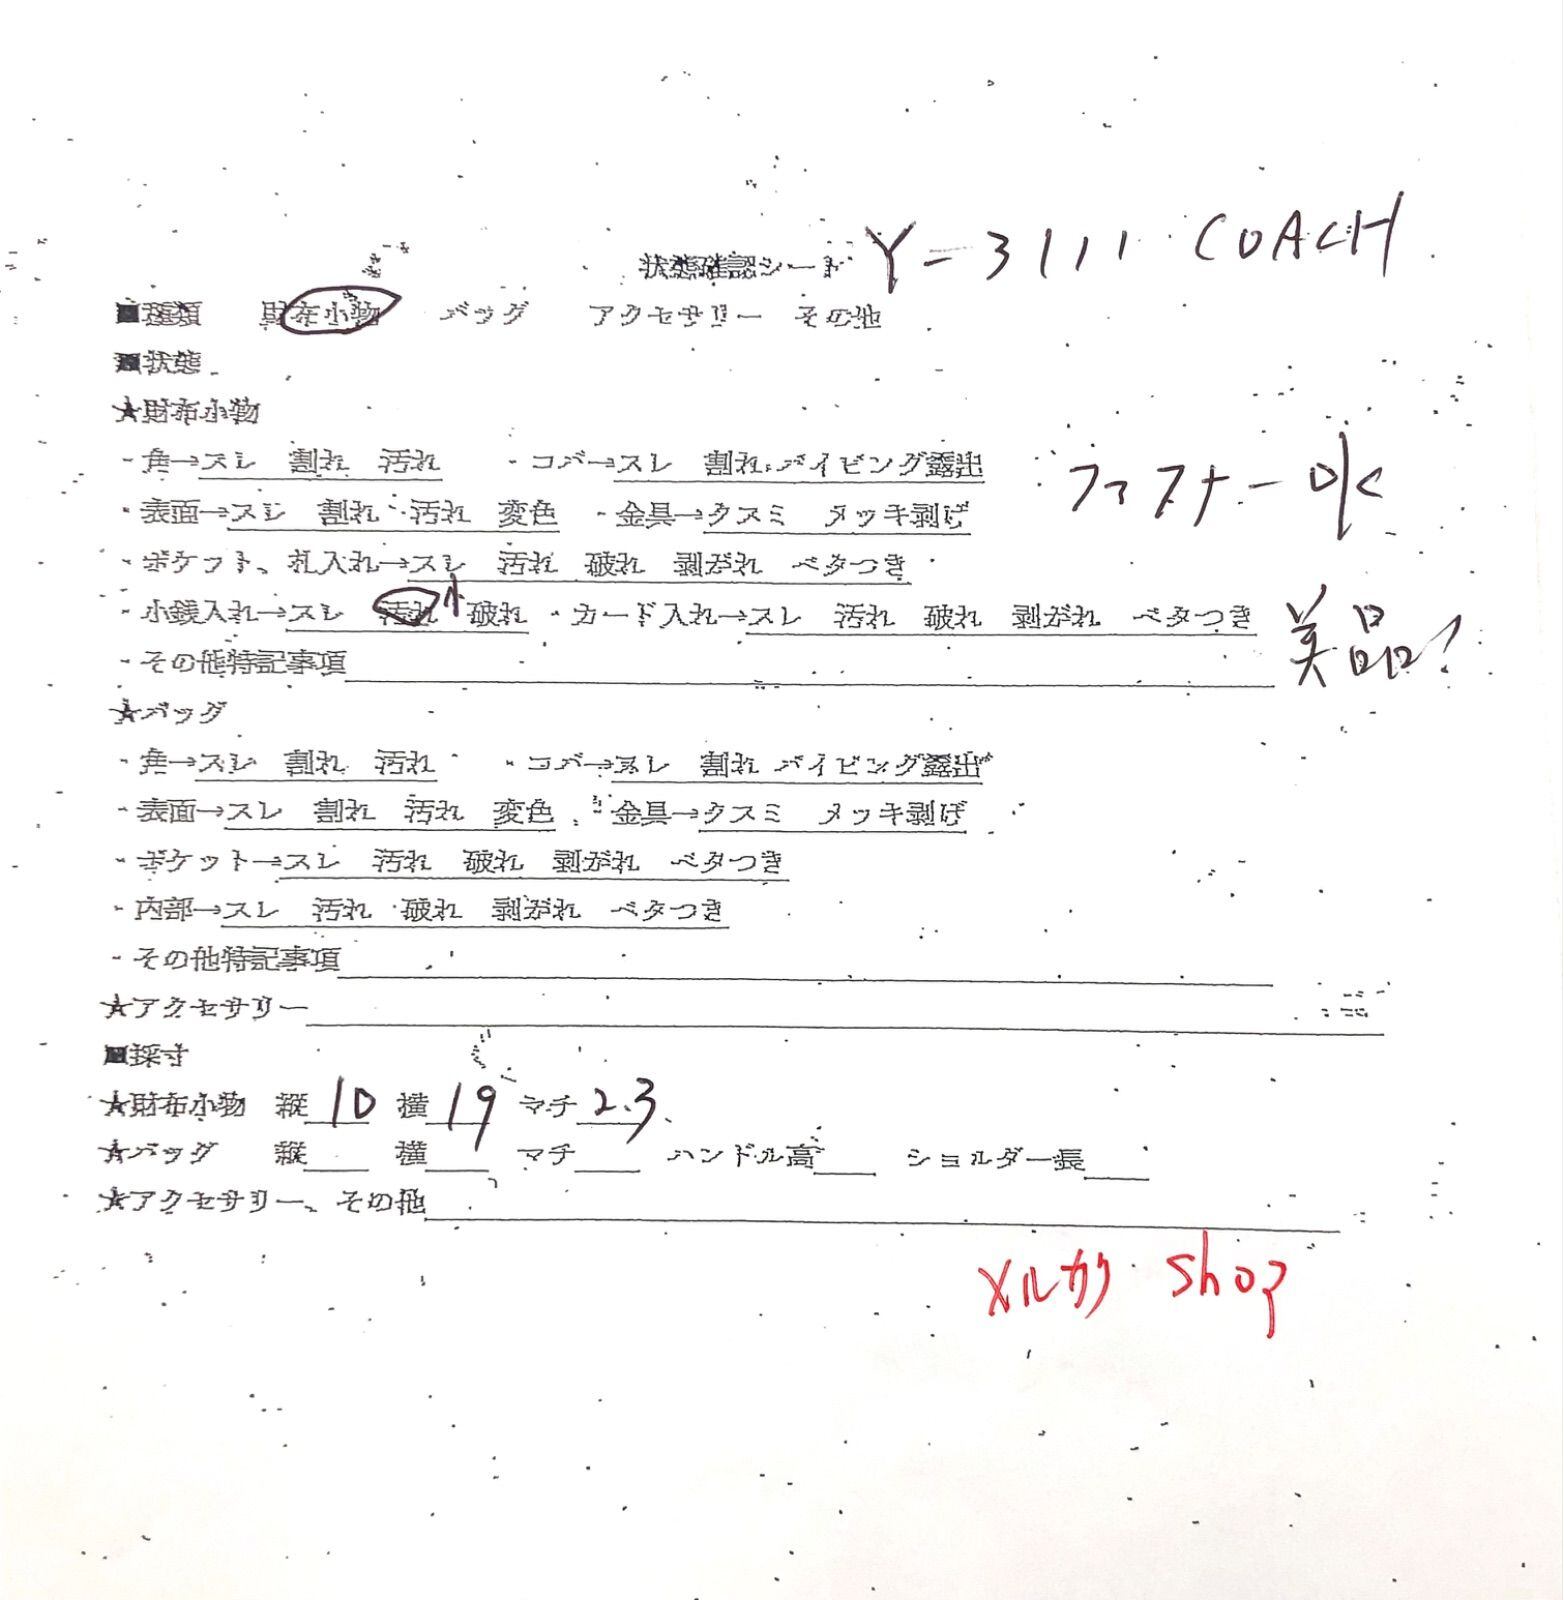 状態確認シート Y-3111 COACH
■種類 財布小物 バッグ アクセサリー その他
■状態
★財布小物
・角→スレ 割れ 汚れ ・コバ→スレ 割れ パイピング露出
ファスナーOK
・表面→スレ 割れ 汚れ 変色 ・金具→クスミ メッキ剥げ
・ポケット、札入れ→スレ 汚れ 破れ 剥がれ ベタつき
・小銭入れ→スレ 汚れ 小 破れ ・カード入れ→スレ 汚れ 破れ 剥がれ ベタつき
美品!
・その他特記事項
★バッグ
・角→スレ 割れ 汚れ ・コバ→スレ 割れ パイピング露出
・表面→スレ 割れ 汚れ 変色 ・金具→クスミ メッキ剥げ
・ポケット→スレ 汚れ 破れ 剥がれ ベタつき
・内部→スレ 汚れ 破れ 剥がれ ベタつき
・その他特記事項
★アクセサリー
■採寸
★財布小物 縦 10 横 19 マチ 2.3
★バッグ 縦 横 マチ ハンドル高 ショルダー長
★アクセサリー、その他
メルカリ Shop